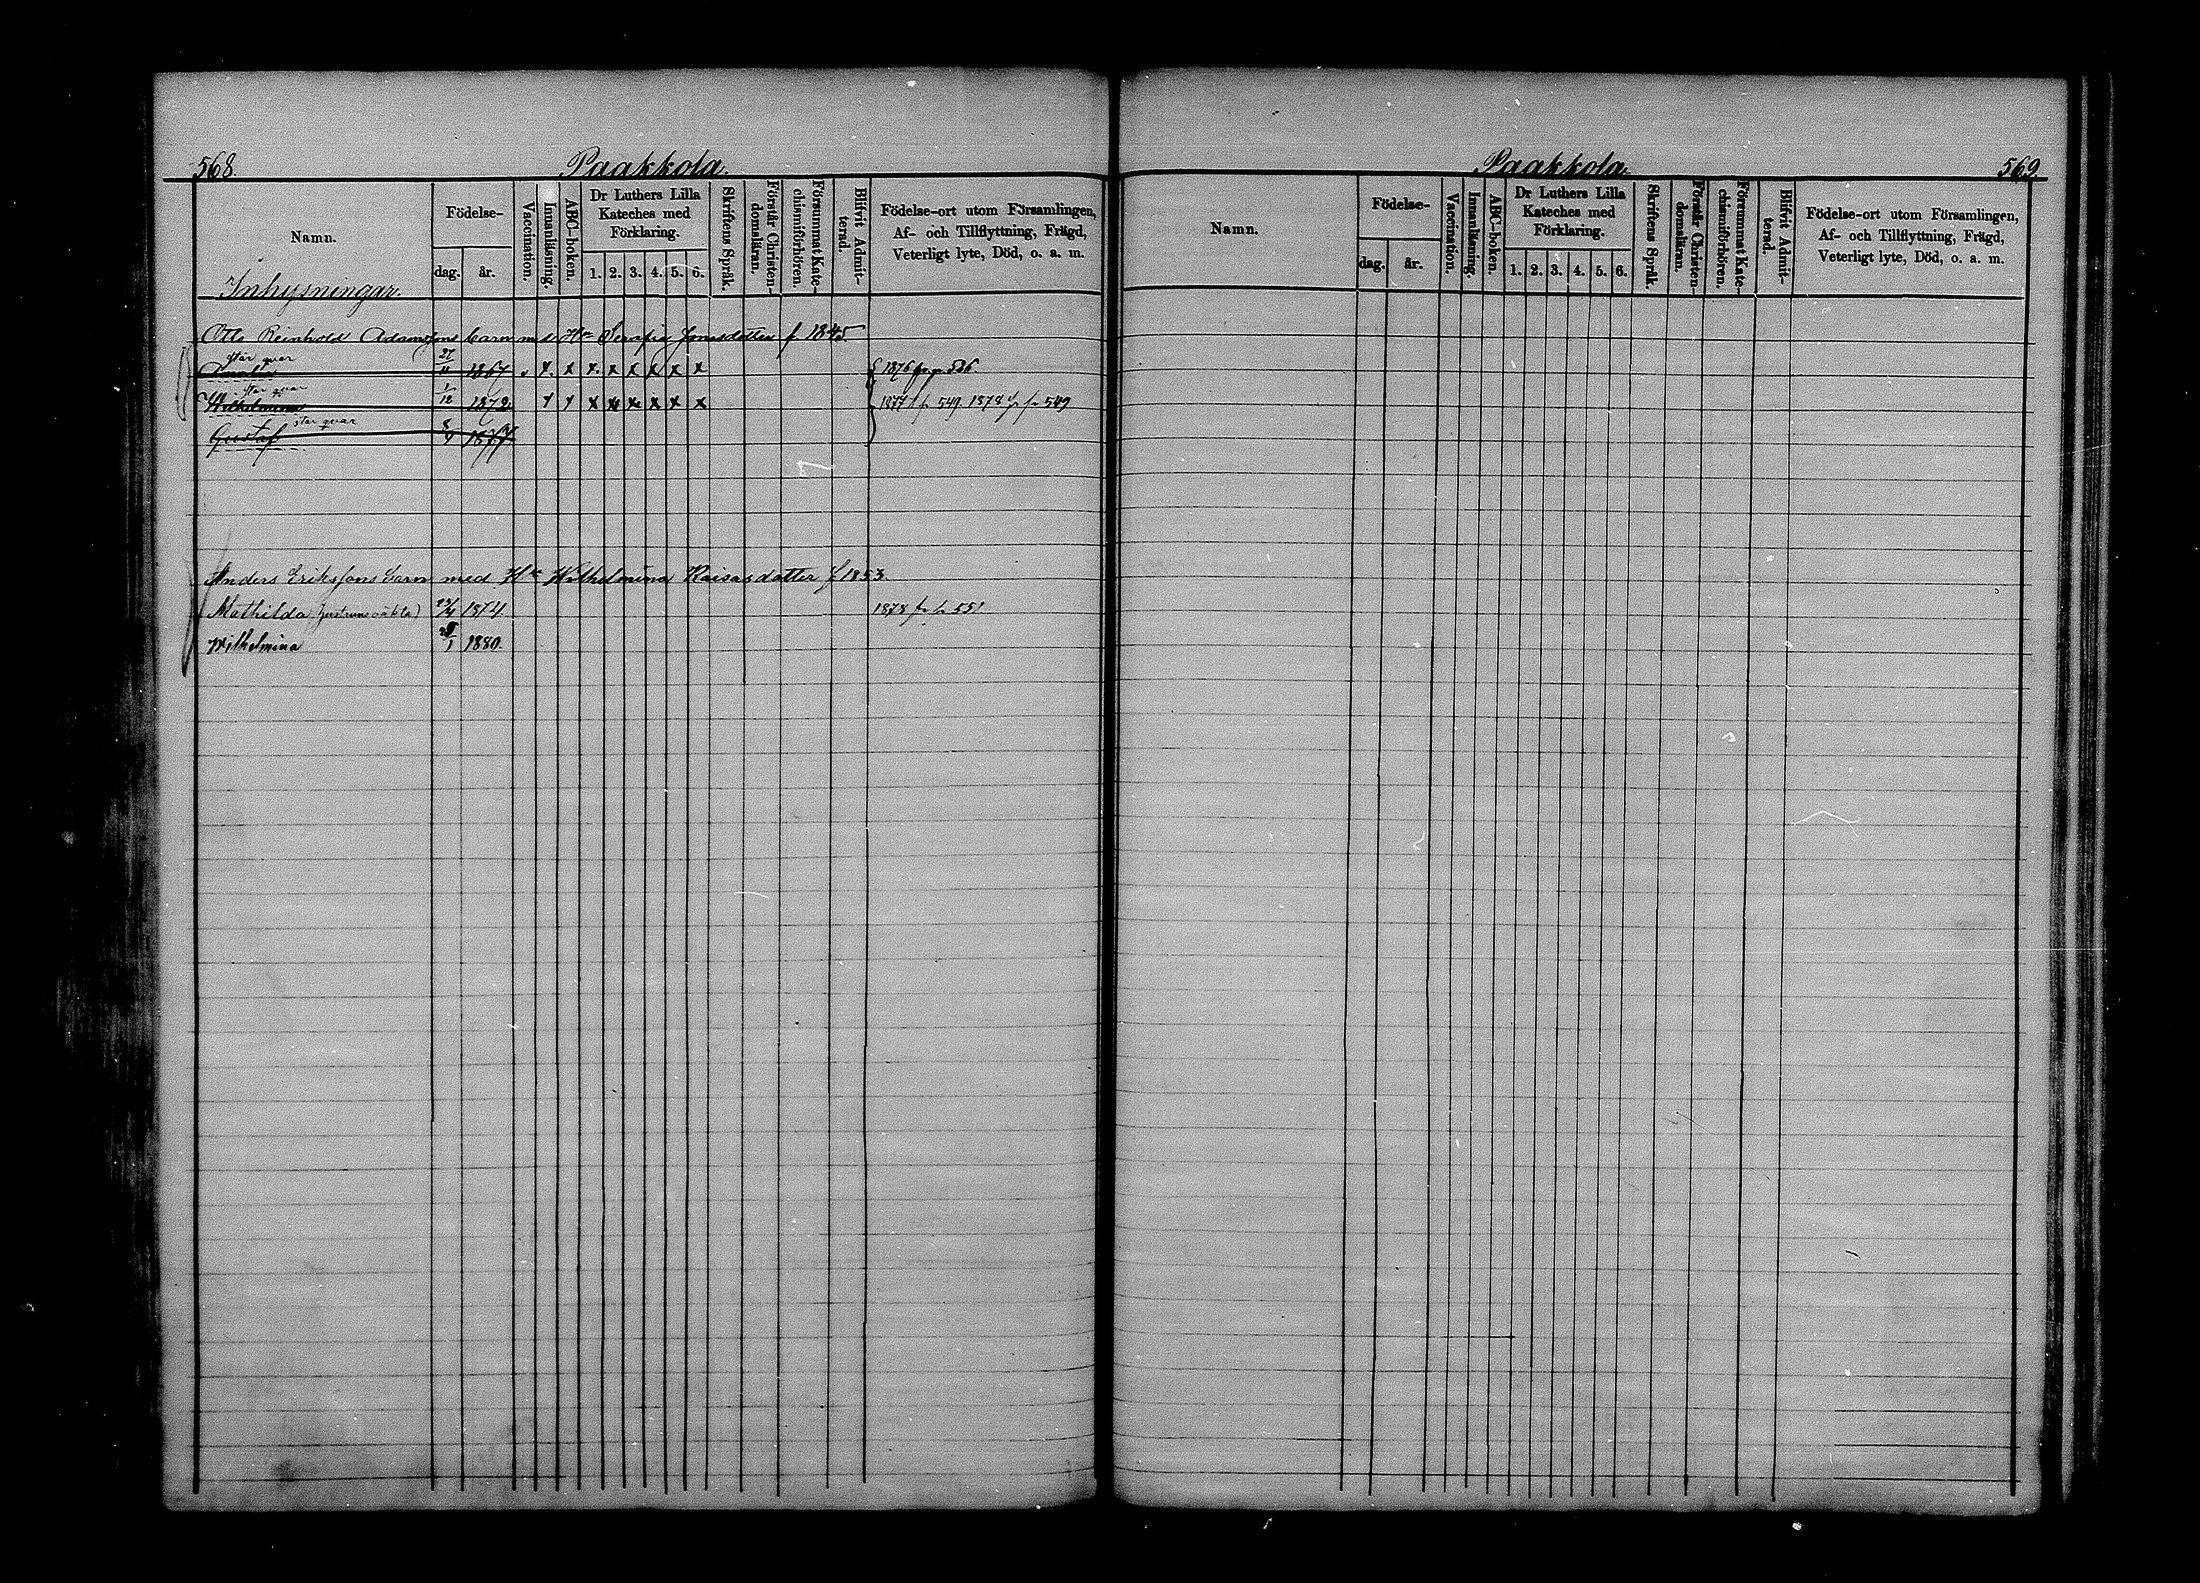 568.
Paakkola.
Namn.
Födelse-
dag.
år.
Vaccination.
Innanläsning.
ABC-boken.
Dr Luthers Lilla
Kateches med
Förklaring.
1. 2. 3. 4. 5. 6.
Skriftens Språk.
Förstår Christen-
domsläran.
Försummat Kate-
chismiförhören.
Blifvit Admit-
terad.
Födelse-ort utom Församlingen,
Af- och Tillflyttning, Frägd,
Veterligt lyte, Död, o. a. m.
Inhysningar.
Otto Reinhold Adamsons barn med Hu Serafia Jonasdotter f 1845
står qvar
27/11 1867 x x x x x x x x 1876 fr p 526
står qvar
Wilhelmina 1/12 1872 x x x x x x x x 1877 fr 549 1878 fr 549
står qvar
Gustaf 1877
Anders Erikssons barn med Hu Wilhelmina Kaisasdotter f 1853.
Mathilda (hustruns oäkta) 23/4 1874. 1878 fr 551
Wilhelmina 1880.
Paakkola.
569.
Namn.
Födelse-
dag.
år.
Vaccination.
Innanläsning.
ABC-boken.
Dr Luthers Lilla
Kateches med
Förklaring.
1. 2. 3. 4. 5. 6.
Skriftens Språk.
Förstår Christen-
domsläran.
Försummat Kate-
chismiförhören.
Blifvit Admit-
terad.
Födelse-ort utom Församlingen,
Af- och Tillflyttning, Frägd,
Veterligt lyte, Död, o. a. m.